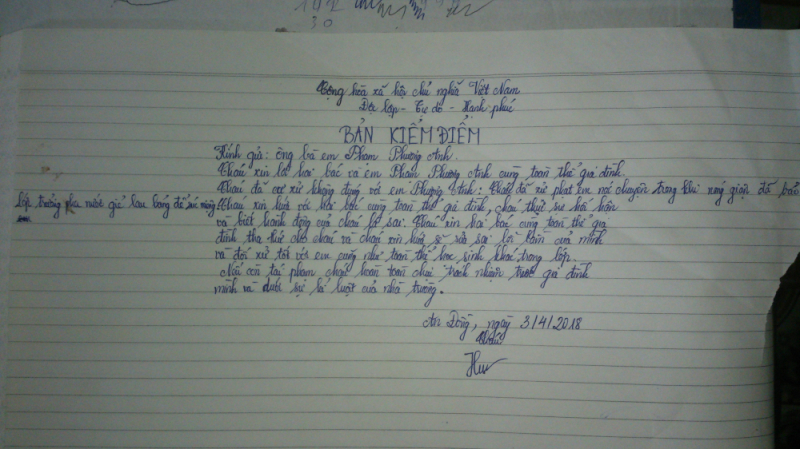 30
Cộng hòa xã hội chủ nghĩa Việt Nam
Độc lập - Tự do - Hạnh phúc
BẢN KIỂM ĐIỂM
Kính gửi: ông bà em Phạm Phương Anh.
Cháu xin lỗi hai bác và em Phạm Phương Anh cùng toàn thể gia đình.
Cháu đã cư xử không đúng với em Phương Anh: Cháu đã xử phạt em nói chuyện trong khi nóng giận đã bảo
lớp trưởng pha nước giẻ lau bảng để súc miệng. Cháu xin hứa với hai bác cùng toàn thể gia đình, cháu thực sự hối hận
và biết hành động của cháu là sai. Cháu xin hai bác cùng toàn thể gia
đình tha thứ cho cháu và cháu xin hứa sẽ sửa sai lỗi lầm của mình
và đối xử tốt với em cũng như toàn thể học sinh khác trong lớp.
Nếu còn tái phạm cháu hoàn toàn chịu trách nhiệm trước gia đình
mình và dưới sự kỉ luật của nhà trường.
An Đồng, ngày 3/4/2018
Cháu